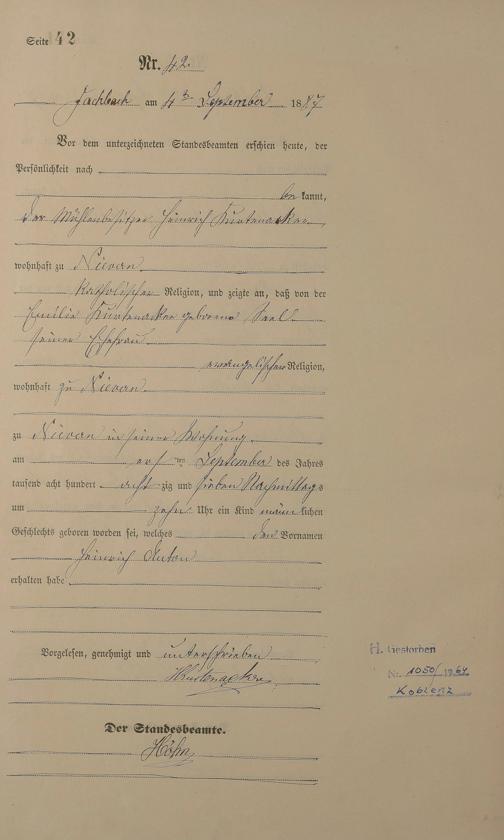 Seite 42
Nr. 42
Fachbach am 4ten September 1887
Vor dem unterzeichneten Standesbeamten erschien heute, der
Persönlichkeit nach
be kannt,
der Mühlenbesitzer Heinrich Kurtenacker
wohnhaft zu Nievern
katholischer Religion, und zeigte an, daß von der
Emilie Kurtenacker geborene Seel
seiner Ehefrau
evangelischer Religion,
wohnhaft zu Nievern
zu Nievern in seiner Wohnung
am ten September des Jahres
tausend acht hundert acht zig und sieben Nachmittags
um zehn Uhr ein Kind männ lichen
Geschlechts geboren worden sei, welches den Vornamen
Heinrich Anton
erhalten habe
Vorgelesen, genehmigt und unterschrieben
HKurtenacker
Der Standesbeamte.
Höhn
H. Gestorben
Nr. 1050/1964
Koblenz